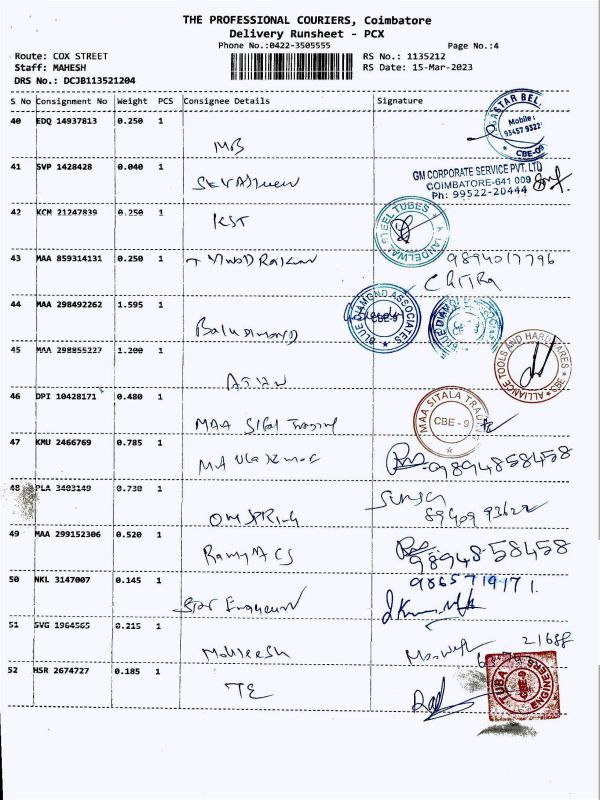 THE PROFESSIONAL COURIERS, Coimbatore
Delivery Runsheet - PCX
Phone No.:0422-3505555
Page No.:4
Route: COX STREET
RS No.: 1135212
Staff: MAHESH
RS Date: 15-Mar-2023
DRS No.: DCJB113521204
S No Consignment No Weight PCS Consignee Details Signature
40 EDQ 14937813 0.250 1
Mobile:
93457 9322
CBE-09
41 SVP 1428428 0.040 1
GM CORPORATE SERVICE PVT. LTD
COIMBATORE-641 009
Ph: 99522-20444
42 KCM 21247839 0.250 1
KST
STEEL TUBES
43 MAA 859314131 0.250 1
9894017796
Chitra
44 MAA 298492262 1.595 1
BLUE DIAMOND ASSOCIATES
CBE-9
BLUE DIAMOND ASSOCIATES
45 MAA 298855227 1.200 1
ALLIANCE TOOLS AND HARDWARES
46 DPI 10428171 0.480 1
MAA Sital Trading
MAA SITALA TRADING
CBE - 9
47 KMU 2466769 0.785 1
9894858458
48 PLA 3403149 0.730 1
OM SPRING
89409 93622
49 MAA 299152306 0.520 1
9894858458
50 NKL 3147007 0.145 1
9865719171
Star Engineers
51 SVG 1964565 0.215 1
21688
52 HSR 2674727 0.185 1
TE
TUBA ENGINEERS
CBE-9